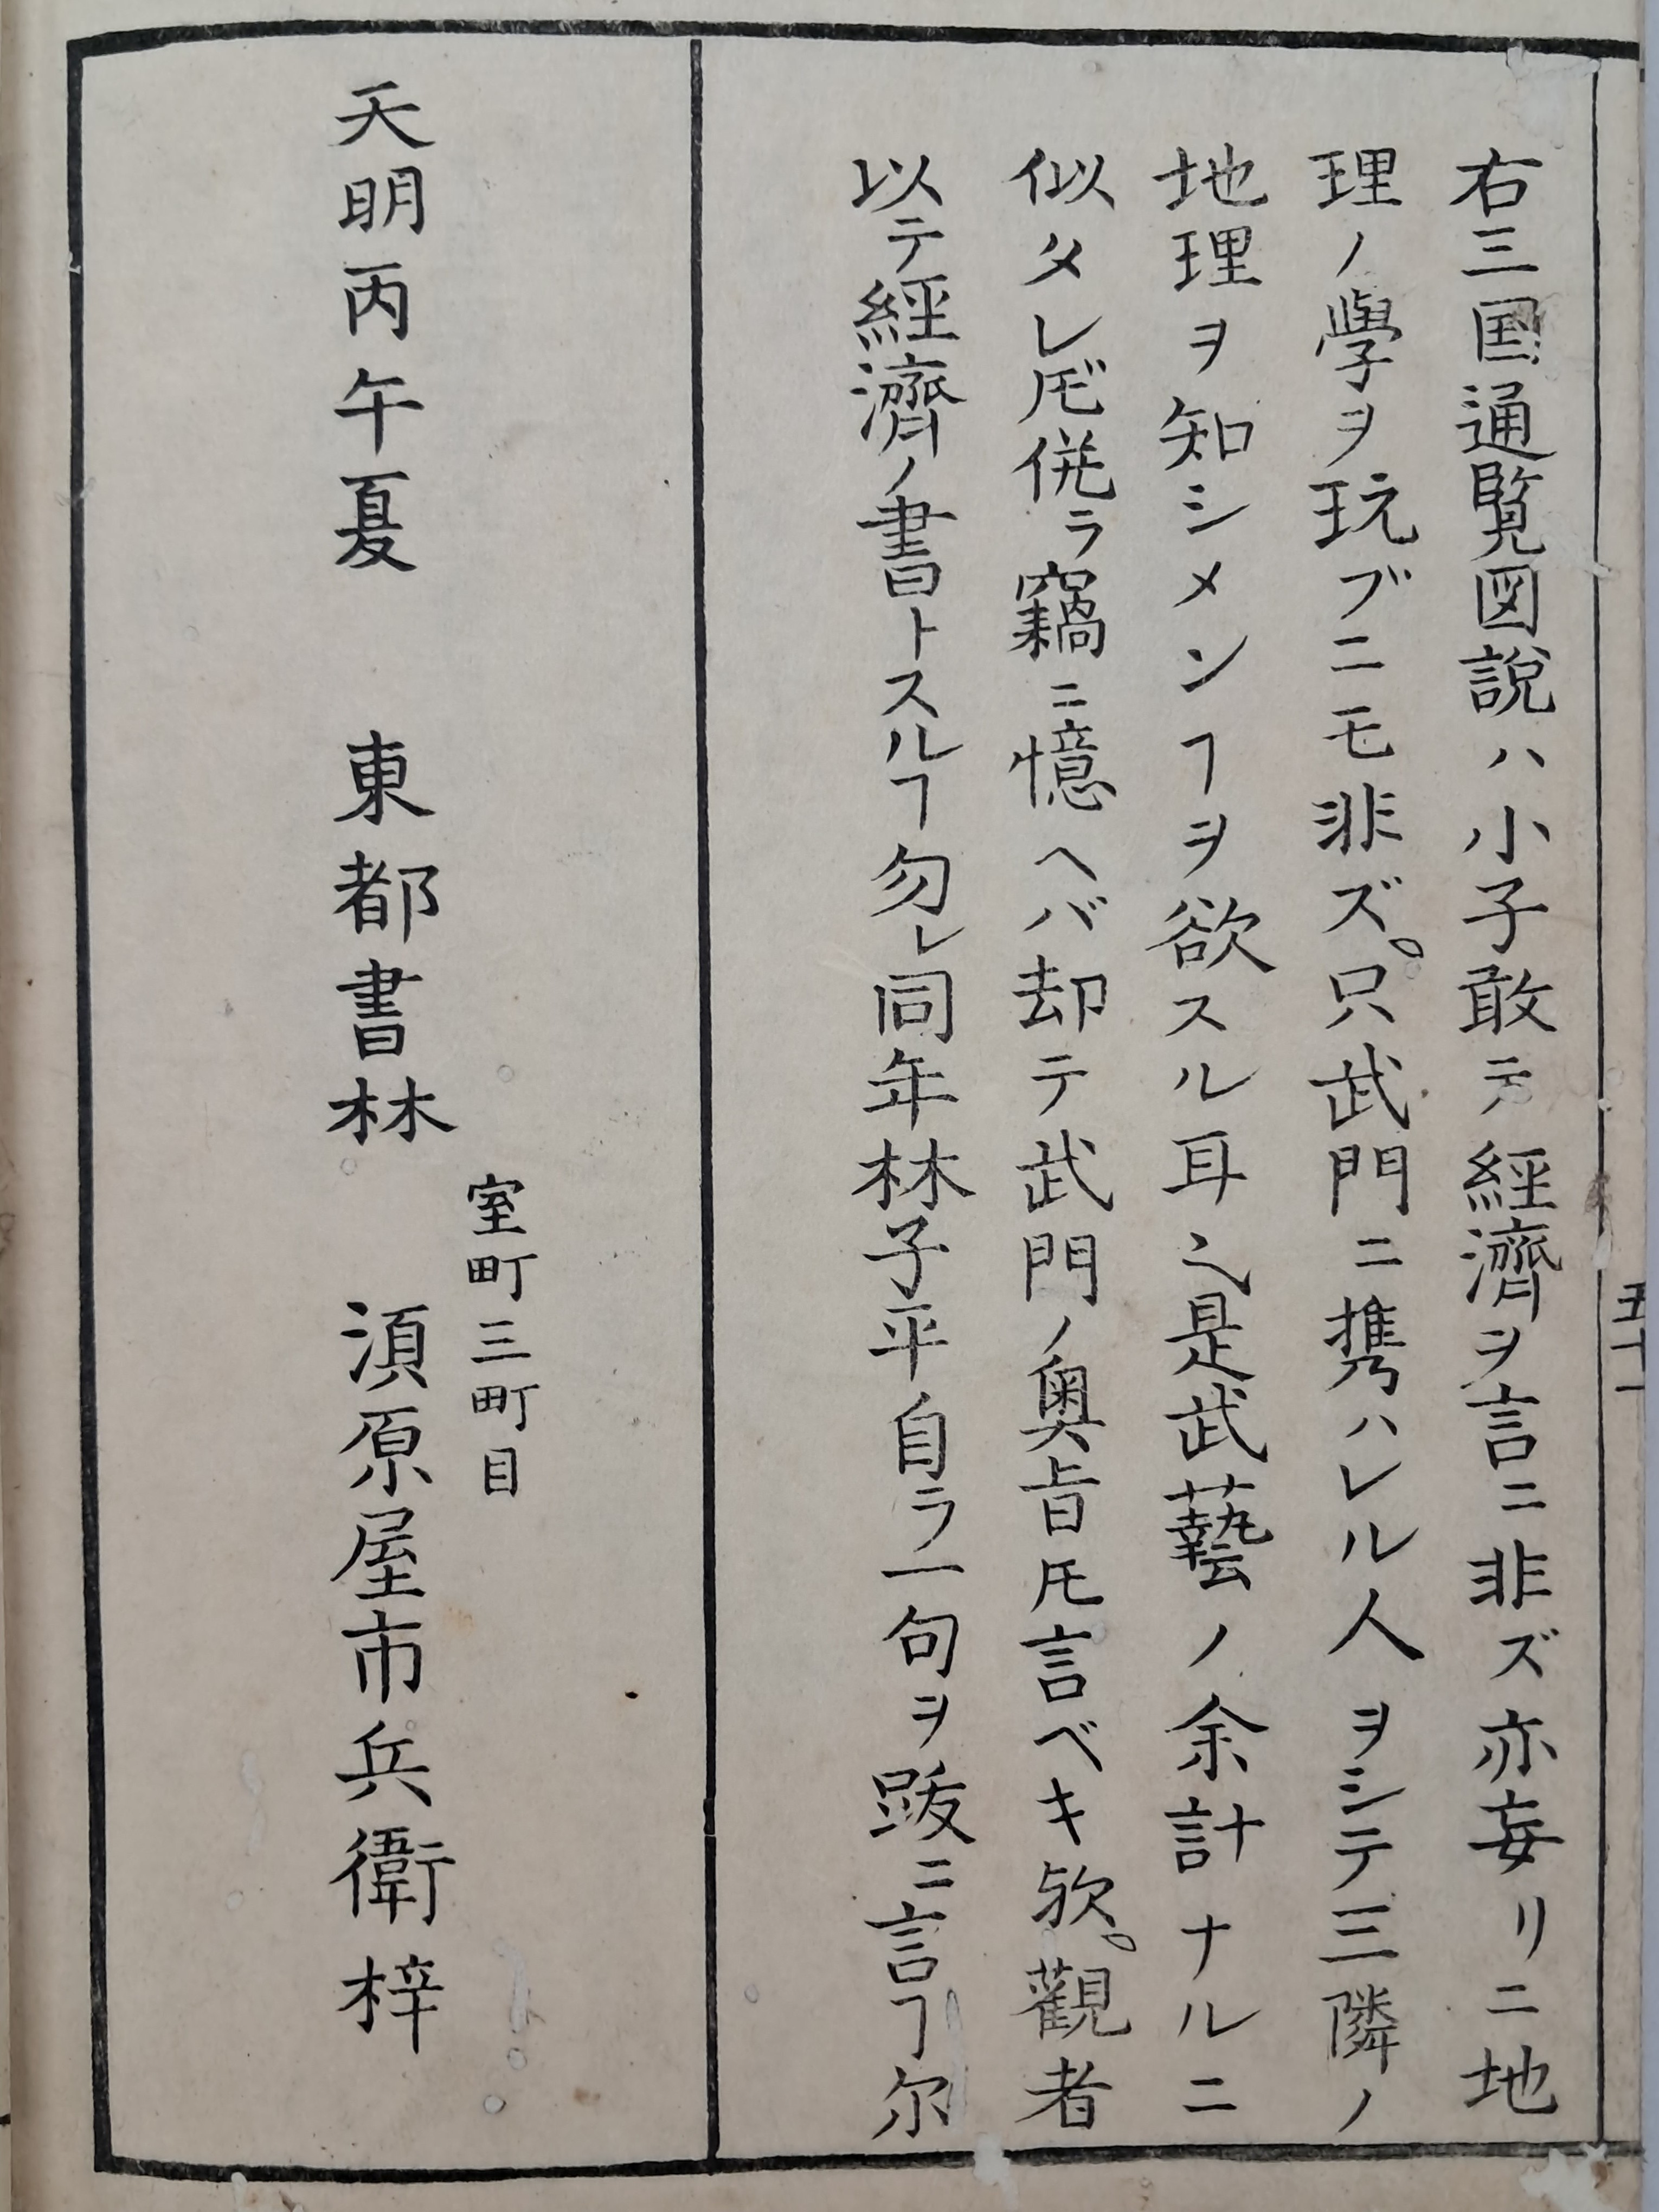 右三国通覧図説ハ小子敢テ經濟ヲ言ニ非ズ亦妄リニ地
理ノ學ヲ玩ブニモ非ズ。只武門ニ携ハレル人ヲシテ三隣ノ
地理ヲ知シメンヿヲ欲スル耳〻是武藝ノ余計ナルニ
似タレ𪜈併ラ竊ニ憶ヘバ却テ武門ノ奥旨𪜈言ベキ欤。觀者
以テ經濟ノ書トスルヿ勿レ同年林子平自ラ一句ヲ跋ニ言ヿ尔
天明丙午夏　東都書林
室町三町目
湏原屋市兵衛梓
五十一